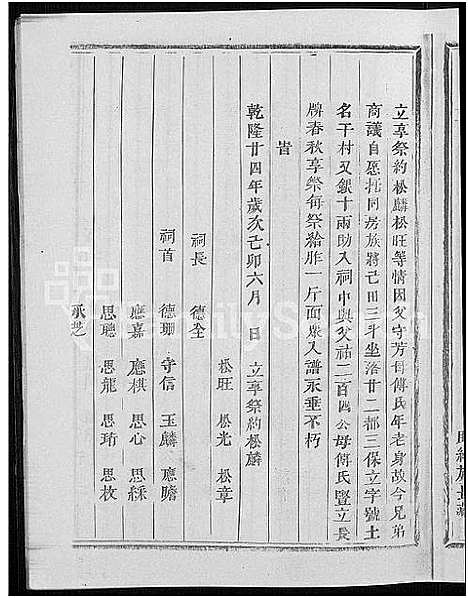 立享祭約松麟松旺等情因父守芳母傅氏年老身故今兄弟
商議自愿托同房族將己田三斗坐落廿二都三保立字號土
名干村又銀十兩助入祠中與父祜二百四公母傅氏豎立長
牌春秋享祭每祭給胙一斤面桌入譜永垂不朽
旹
乾隆廿四年歲次己卯六月 日 立享祭約松麟
松旺 松光 松章
祠長 德全
祠首 德珊 守信 玉麟 應瞻
應嘉 應棋 思心 思綵
思聰 思龍 思琦 思枚
承芝